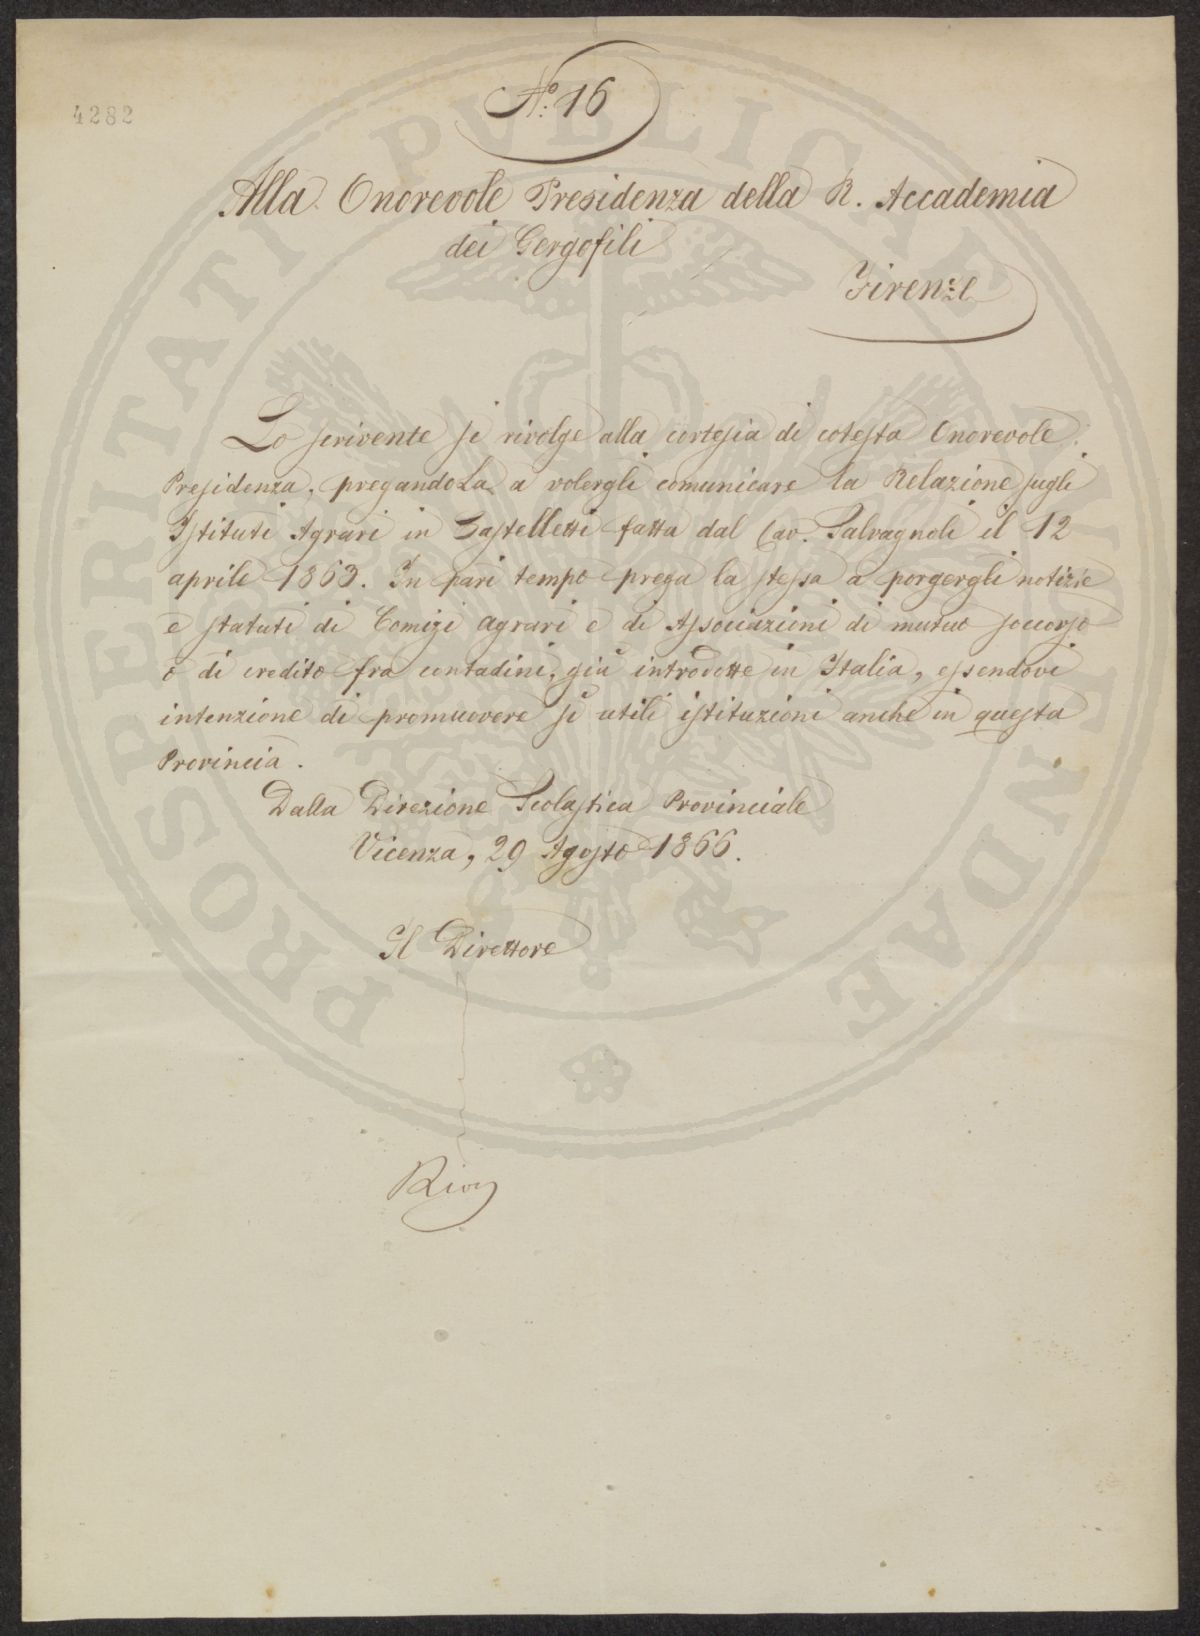 4282
N.° 16
Alla Onorevole Presidenza della R. Accademia
dei Gergofili
Firenze
Lo scrivente si rivolge alla cortesia di cotesta Onorevole
Presidenza, pregandola a volergli comunicare la Relazione sugli
Istituti Agrari in Castelletti fatta dal Cav. Salvagnoli il 12
aprile 1863. In pari tempo prega la stessa a porgergli notizie
e statuti di Comizi agrari e di Associazioni di mutuo soccorso
o di credito fra contadini, già introdotte in Italia, essendovi
intenzione di promuovere sì utili istituzioni anche in questa
Provincia.
Dalla Direzione Scolastica Provinciale
Vicenza, 29 Agosto 1866.
Il Direttore
PROSPERITATI PVBLICAE AVGENDAE